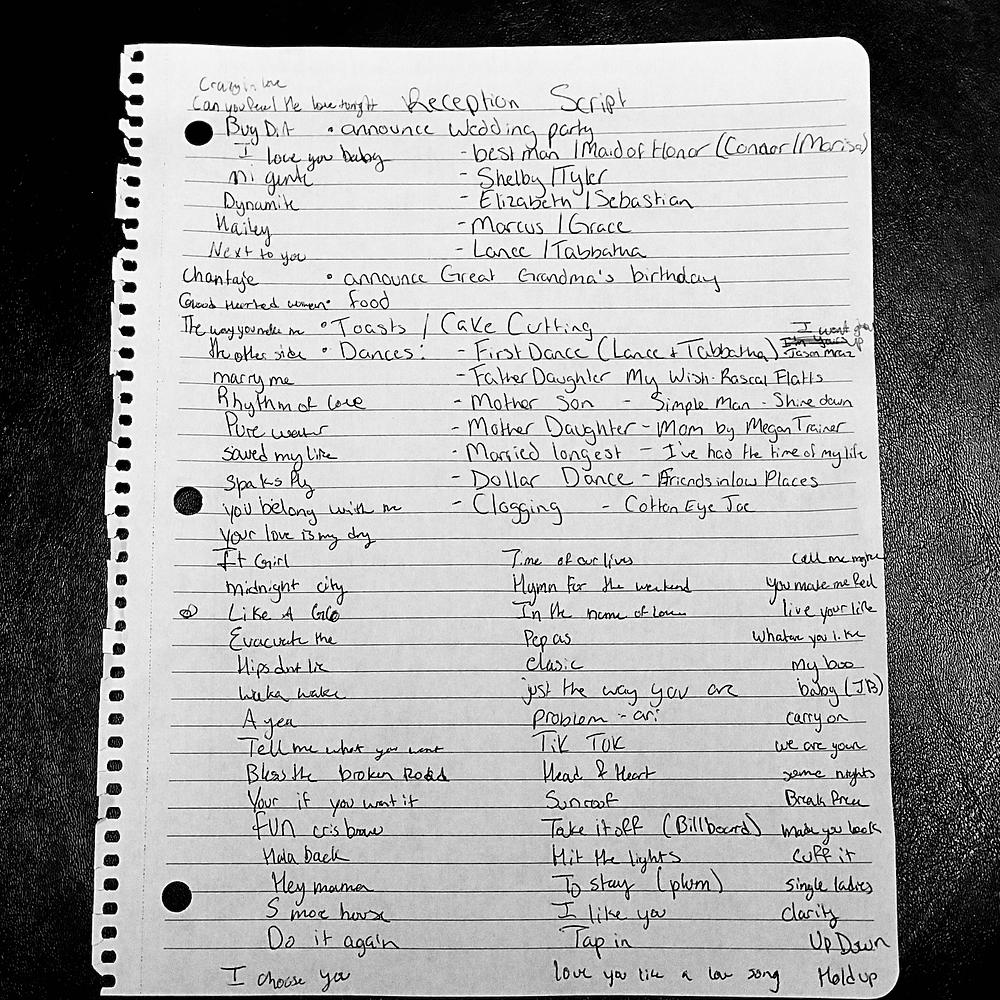 Crazy in love
Can you feel the love tonight Reception Script
Bug • announce Wedding party
I love you baby - best man / Maid of Honor (Connor / Marisa)
mi gente - Shelby / Tyler
Dynamite - Elizabeth / Sebastian
Hailey - Marcus / Grace
Next to you - Lance / Tabbatha
Chantaje • announce Great Grandma's birthday
Good Hearted women • food
The way you make me • Toasts / Cake Cutting I wont give up
the other side • Dances: - First Dance (Lance + Tabbatha) Jason Mraz
marry me - Father Daughter My Wish - Rascal Flatts
Rhythm of love - Mother Son - Simple Man - Shine down
Pure water - Mother Daughter - Mom by Megan Trainer
saved my life - Married longest - I've had the time of my life
Sparks fly - Dollar Dance - Friends in low Places
you belong with me - Clogging - Cotton Eye Joe
your love is my drg
It Girl Time of our lives call me maybe
midnight city Hymn for the weekend you make me feel
Like A G6 In the name of love live your life
Evacuate the Pepas Whatever you like
Hips dnt lie Clasic my boo
waka waka just the way you are baby (JB)
A yea Problem - ari carry on
Tell me what you want Tik Tok we are youn
Bless the broken Road Head & Heart some nights
Your if you want it Sunroof Break Free
FUN cris brow Take it off (Billboard) made you look
Hala back Hit the lights cuff it
Hey mama To stay (plum) single ladies
I like you clarity
Do it again Tap in Up Down
I choose you love you like a love song Hold up